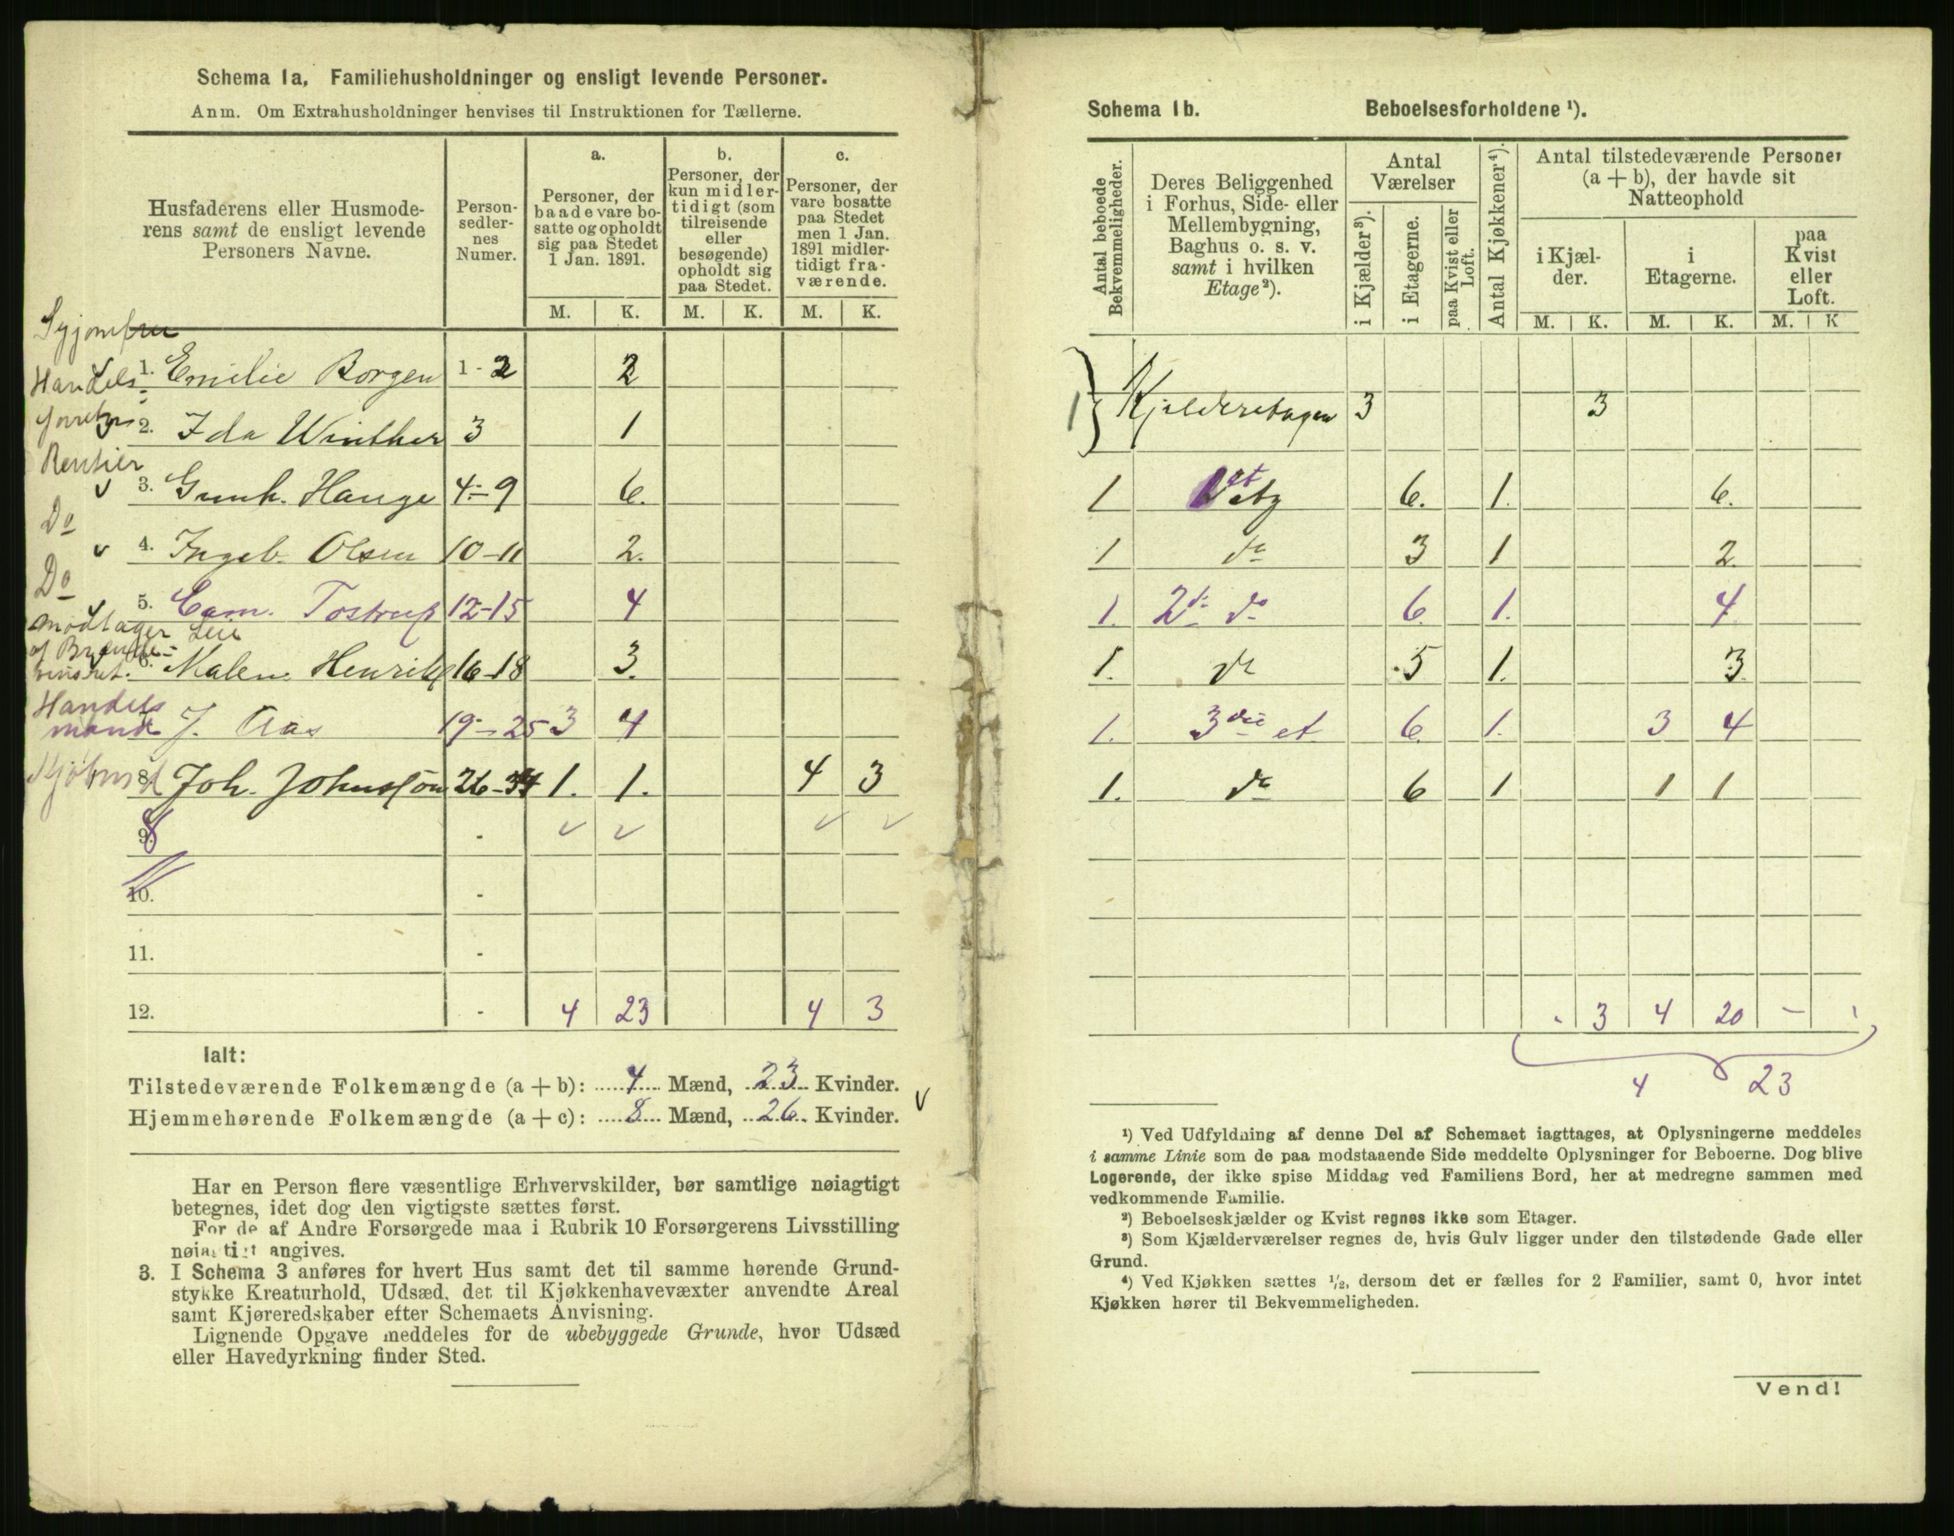 Schema 1a, Familiehusholdninger og ensligt levende Personer.
Anm. Om Extrahusholdninger henvises til Instruktionen for Tællerne.
Husfaderens eller Husmode-
rens samt de ensligt levende
Personers Navne.
Person-
sedler-
nes
Numer.
a.
Personer, der
baade vare bo-
satte og opholdt
sig paa Stedet
1 Jan. 1891.
M. K.
b.
Personer, der
kun midler-
tidigt (som
tilreisende
eller
besøgende)
opholdt sig
paa Stedet.
M. K.
c.
Personer, der
vare bosatte
paa Stedet
men 1 Jan.
1891 midler-
tidigt fra-
værende.
M. K.
Syjomfru
1. Emilie Borgen 1-2 2
Handels
2. Ida Winther 3 1
Rentier
3. Gunh. Hauge 4-9 6.
Do
4. Ingeb. Olsen 10-11 2.
Do
5. Cam. Tostrup 12-15 4
modtager Leie
af
6. Malen Henriks 16-18 3.
Handels
mand J. Aas 19-25 3 4
8. Joh. Johnson 26-34 1. 1. 4 3
9. 8 - v v v v
10. -
11. -
12. - 4 23 4 3
Ialt:
Tilstedeværende Folkemængde (a + b): 4 Mænd, 23 Kvinder.
Hjemmehørende Folkemængde (a + c): 8 Mænd, 26 Kvinder. v
Har en Person flere væsentlige Erhvervskilder, bør samtlige nøiagtigt
betegnes, idet dog den vigtigste sættes først.
For de af Andre Forsørgede maa i Rubrik 10 Forsørgerens Livsstilling
nøiagtigt angives.
3. I Schema 3 anføres for hvert Hus samt det til samme hørende Grund-
stykke Kreaturhold, Udsæd, det til Kjøkkenhavevæxter anvendte Areal
samt Kjøreredskaber efter Schemaets Anvisning.
Lignende Opgave meddeles for de ubebyggede Grunde, hvor Udsæd
eller Havedyrkning finder Sted.
Schema 1b. Beboelsesforholdene ¹).
Antal beboede
Bekvemmeligheder.
Deres Beliggenhed
i Forhus, Side- eller
Mellembygning,
Baghus o. s. v.
samt i hvilken
Etage²).
Antal
Værelser
i Kjælder³).
i Etagerne.
paa Kvist eller
Loft.
Antal Kjøkkener⁴).
Antal tilstedeværende Personer
(a + b), der havde sit
Natteophold
i Kjæl-
der.
i
Etagerne.
paa
Kvist
eller
Loft.
M. K. M. K. M. K
1 } Kjelderetagen 3 3
1 1st etg 6. 1. 6.
1 do 3 1 2.
1. 2den do 6. 1. 4
1. do 5 1. 3.
1. 3die et 6. 1. 3 4
1. do 6 1 1 1
. 3 4 20 -
4 23
¹) Ved Udfyldning af denne Del af Schemaet iagttages, at Oplysningerne meddeles
i samme Linie som de paa modstaaende Side meddelte Oplysninger for Beboerne. Dog blive
Logerende, der ikke spise Middag ved Familiens Bord, her at medregne sammen med
vedkommende Familie.
²) Beboelseskjælder og Kvist regnes ikke som Etager.
³) Som Kjælderværelser regnes de, hvis Gulv ligger under den tilstødende Gade eller
Grund.
⁴) Ved Kjøkken sættes ½, dersom det er fælles for 2 Familier, samt 0, hvor intet
Kjøkken hører til Bekvemmeligheden.
Vend!